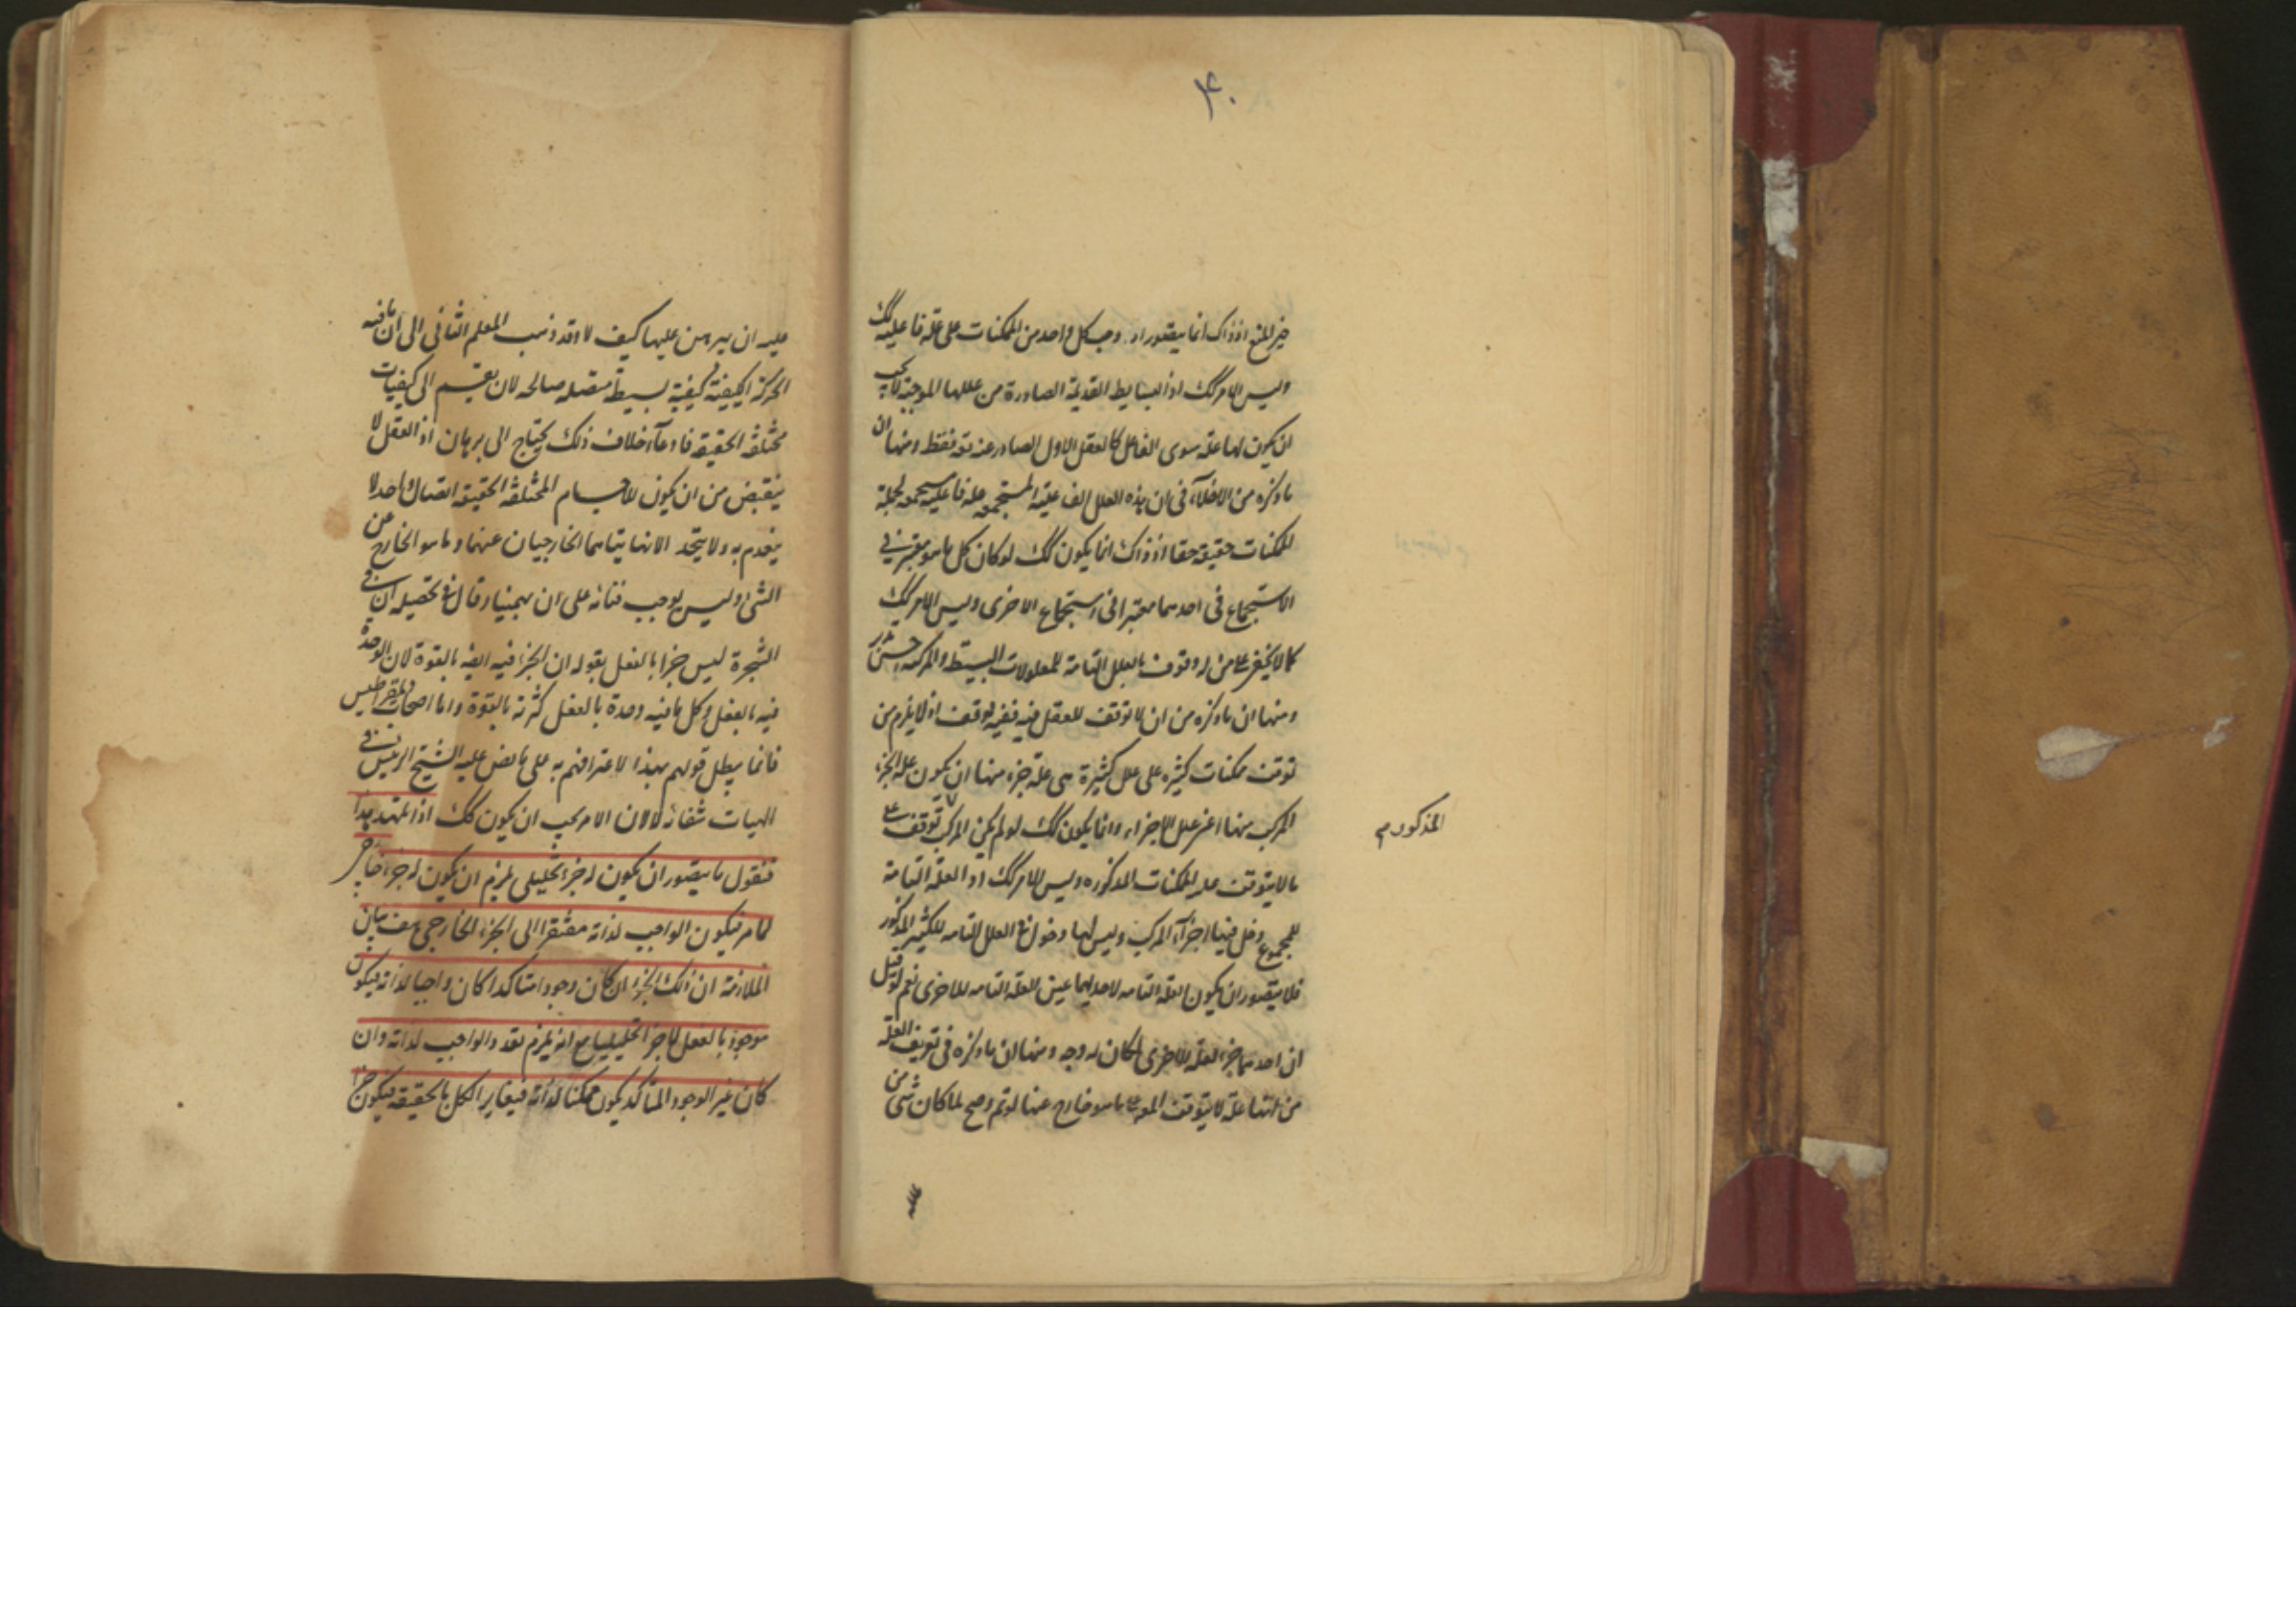 ۴۰
حيز المنع اذ ذاك انما يتصور لو وجب كل واحد من الممكنات على علة فاعلية كك
وليس الامر كك اذ البسايط القديمة الصادرة من عللها الموجبة لا يجب
ان يكون لها علة سوى الفاعل كالعقل الاول الصادر عنه تعه فقط ومنها ان
ما ذكره من الاختلاء في ان هذه العلل الفاعلية المستجمعة علة فاعلية مستجمعة لجملة
الممكنات حقيقة حقا اذ ذاك انما يكون كك لو كان كل ما هو معتبر في
الاستجماع في احدهما معتبرا في استجماع الاخرى وليس الامر كك
كما لا يخفى على من له وقوف بالعلل التامة للمعلولات البسيطة والمركبة
ومنها ان ما ذكره من ان لا توقف للعقل فيه ففيه توقف اذ لا يلزم من
توقف ممكنات كثيرة على علل كثيرة هى علة جزء منها ان يكون علة الجزء
المركب منها اعنى علل الاجزاء وانما يكون كك لو لم يكن المركب توقف على
ما لا يتوقف عليه الممكنات المذكوره وليس الامر كك اذ العلة التامة
المذكورة م
للمجموع دخل فيها اجزاء المركب وليس لها دخول في العلل التامه للكثير المذكور
فلا يتصور ان يكون العلة التامه لاحديهما عين العلة التامه للاخرى نعم لو قيل
ان احدهما جزء العلة للاخرى لكان له وجه ومنها ان ما ذكره فى تعريف العلة
من انها علة لا يتوقف المعه على ما هو خارج عنها لو تم وصح لما كان شئ من
علله
عليه ان يبرهن عليها كيف لا وقد ذهب المعلم الثانى الى ان ما فيه
الحركة الكيفية كيفية بسيطة متصله صالحه لان يقسم الى كيفيات
مختلفة الحقيقة فادعاء خلاف ذلك يحتاج الى برهان اذ العقل لا
ينقبض من ان يكون للاجسام المختلفة الحقيقة اتصال واحد لا
ينعدم به ولا يتحد الا نهايتاهما الخارجيان عنهما وما هو الخارج عن
الشئ وليس يوجب فنائه على ان بهمنيار قال في تحصيله ان في
الشجرة ليس جزا بالفعل بقوله ان الجزء فيه ايضه بالقوة لان الوحدة
فيه بالفعل وكل ما فيه وحدة بالفعل كثرته بالقوة واما اصحاب ذيمقراطيس
فانما يبطل قولهم بهذا لاعترافهم به على ما نص عليه الشيخ الرئيس في
الهيات شفائه لا لان الامر يجب ان يكون كك اذا تمهد هذا
فنقول ما يتصور ان يكون له جزء تحليلى يلزم ان يكون له جزء خارجى
لما مر فيكون الواجب لذاته مفتقرا الى الجزء الخارجى هف بيان
الملازمة ان ذلك الجزء ان كان وجودا متاكدا كان واجبا لذاته فيكون
موجودا بالفعل لا جزا تحليليا مع انه يلزم تعدد الواجب لذاته وان
كان غير الوجود المتاكد يكون ممكنا لذاته فيغاير الكل بالحقيقة فيكون جزا